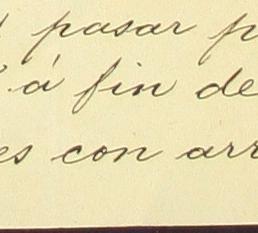 pasar p
á fin de
es con arr